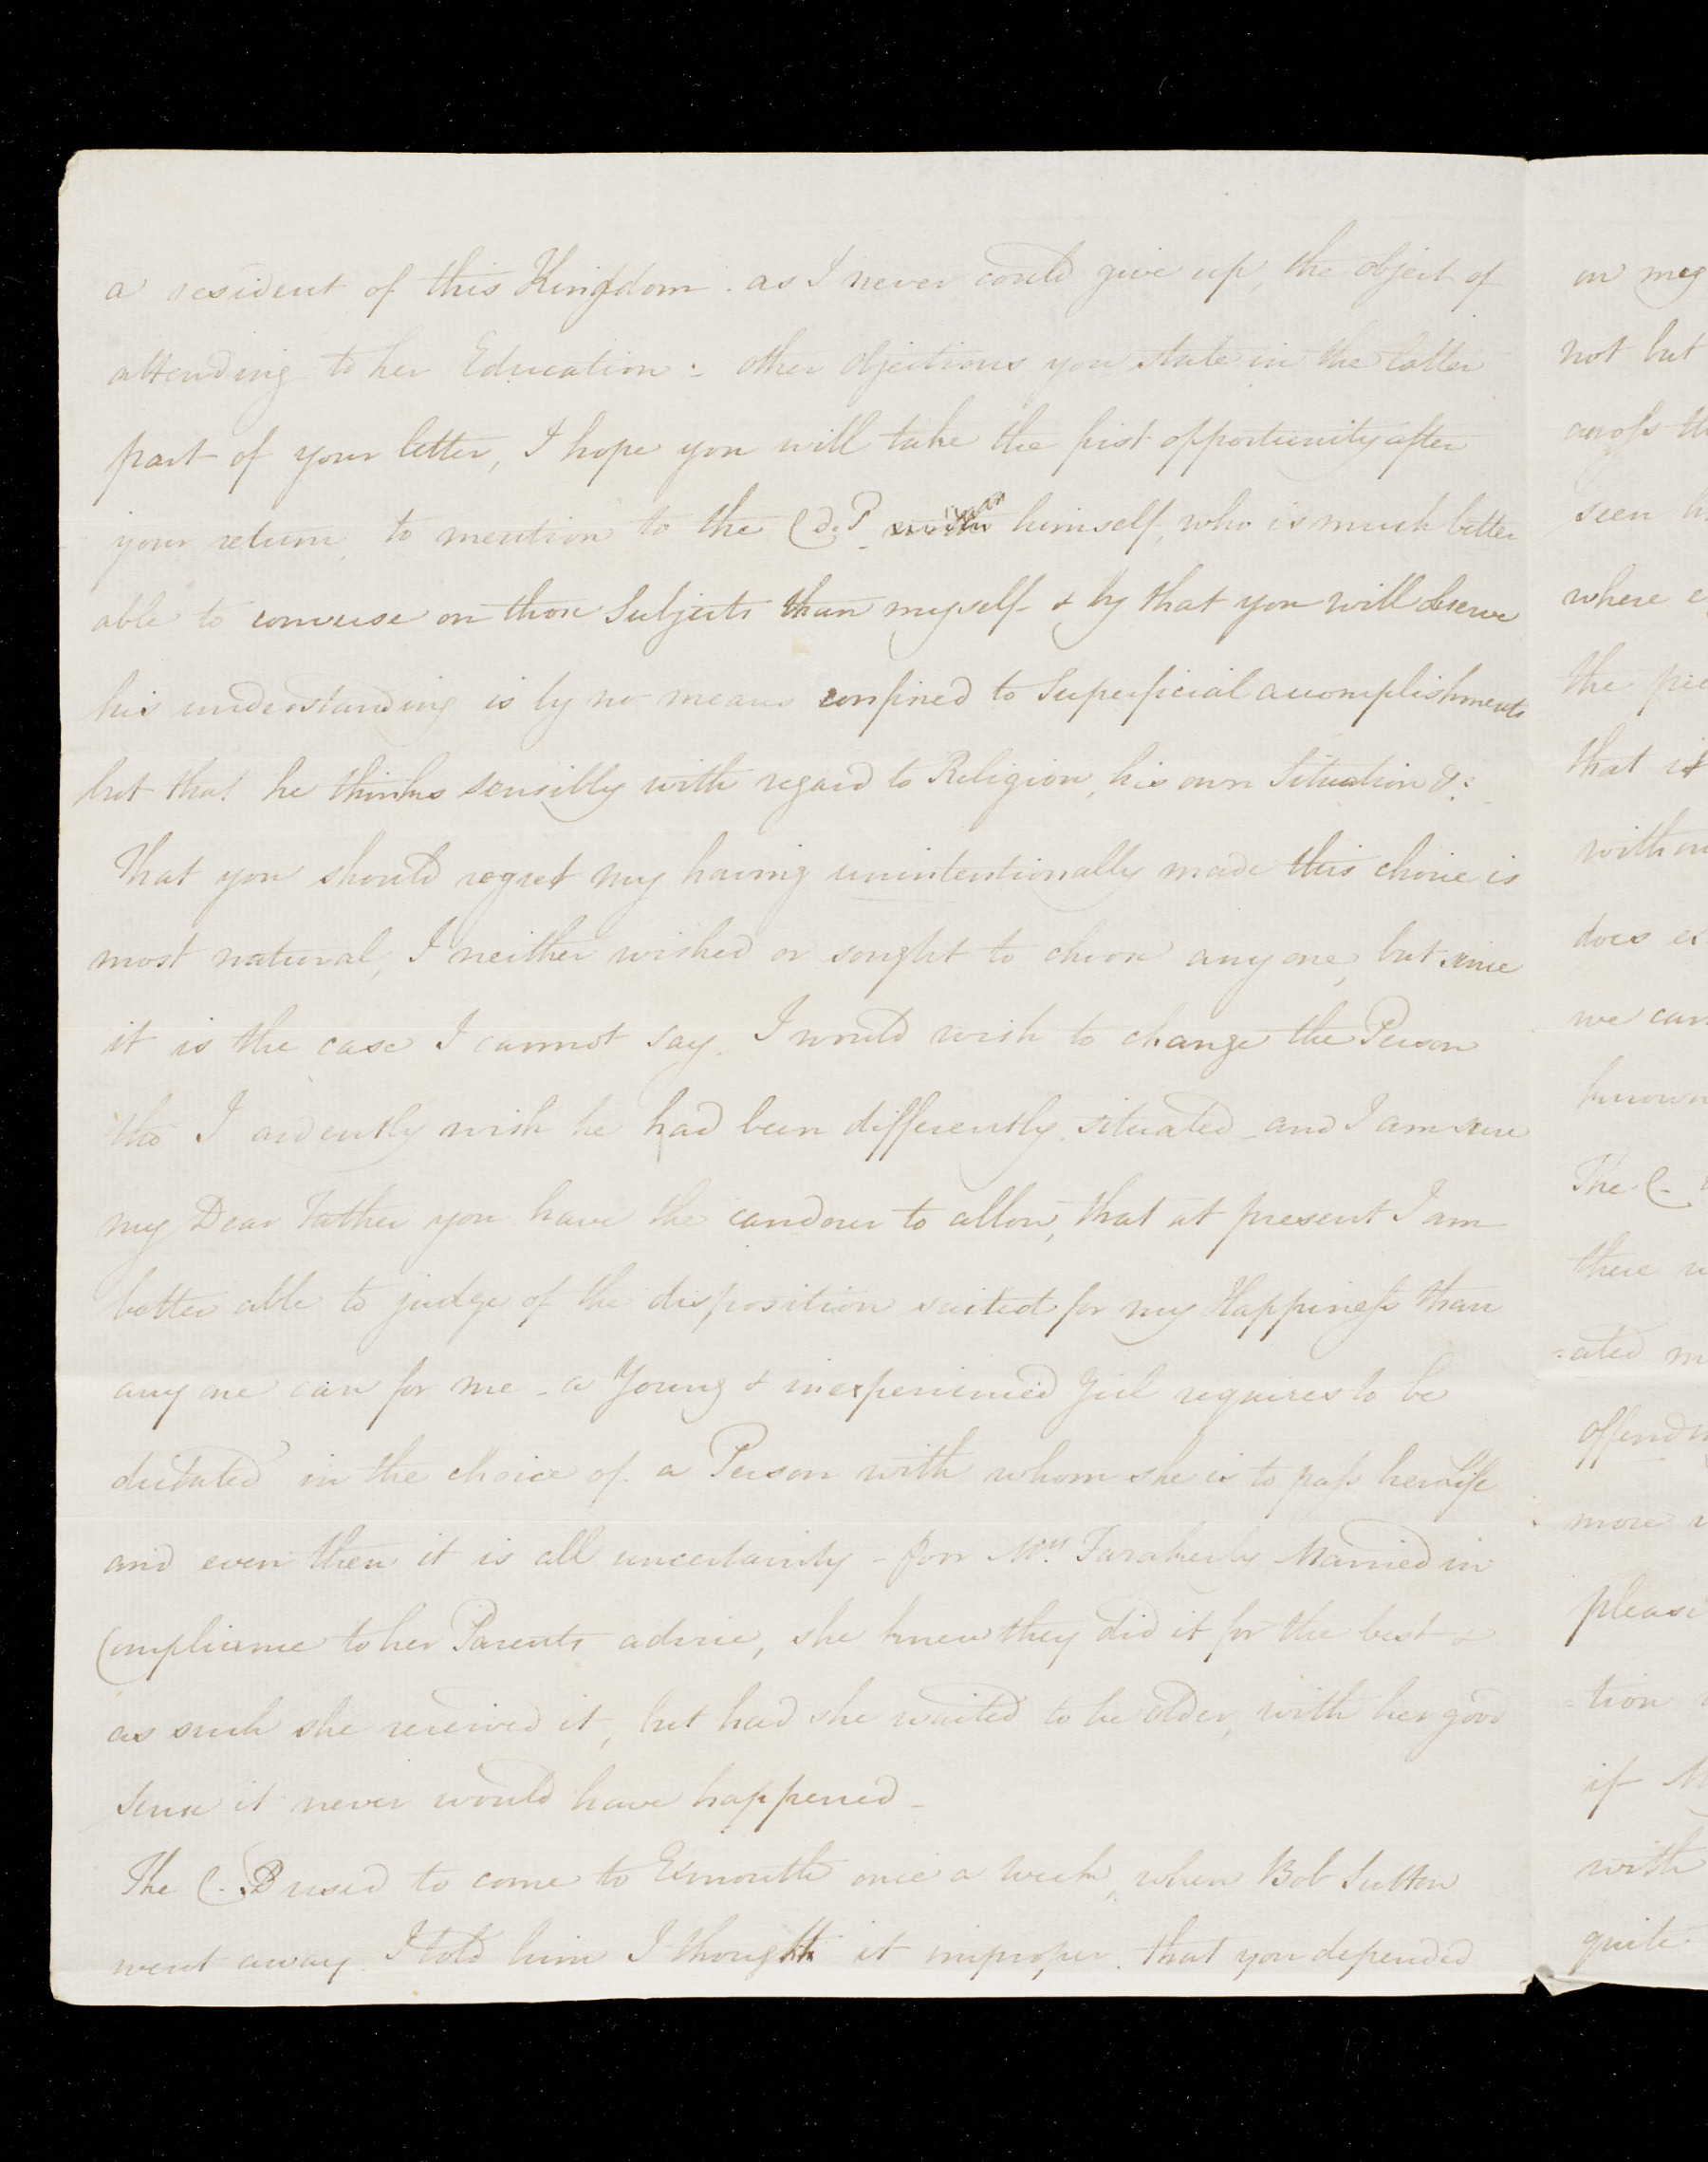 a resident of this Kingdom. as I never could give up, the object of
attending to her Education: other objections you state in the latter
part of your letter, I hope you will take the first opportunity after
your return, to mention to the C d. P himself, who is much better
able to converse on those Subjects than myself & by that you will observe
his understanding is by no means confined to Superficial accomplishments
but that he thinks sensibly with regard to Religion, his own Situation &c
That you should regret my having unintentionally made this choice is
most natural, I neither wished or sought to choose any one, but since
it is the case I cannot say I would wish to change the Person
tho I ardently wish he had been differently situated - and I am sure
my Dear Father you have the candour to allow, that at present I am
better able to judge of the disposition suited for my Happiness than
any one can for me - a Young & inexperienced Girl requires to be
dictated in the choice of a Person with whom she is to pass her Life
and even then it is all uncertainty - poor Mrs. Married in
Compliance to her Parents advice, she knew they did it for the best &
as such she received it, but had she waited to be older, with her good
sense it never would have happened -
The C. used to come to Exmouth once a week, when Bob Sutton
went away I told him I thought it improper. that you depended
on my
not but
across th
seen
where
the
that it
without
does
we can
known
The C.
there
=ated m
offend
more
please
=tion
if M
with
quite